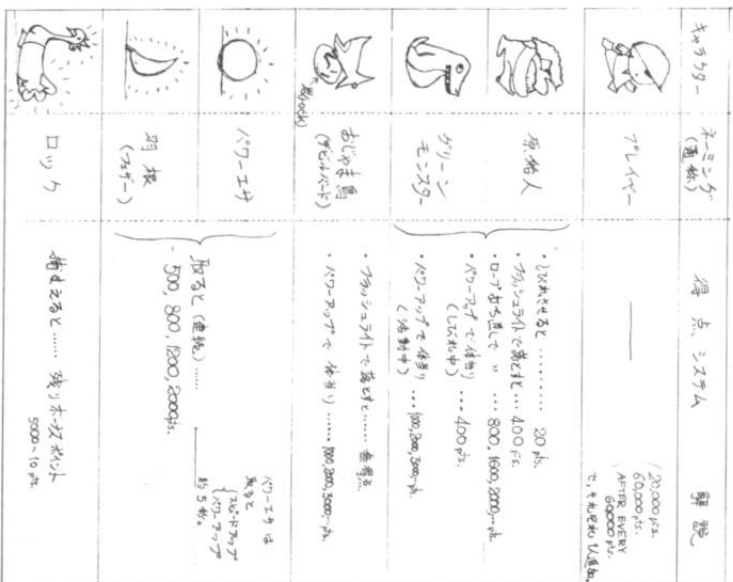 キャラクター
ネーミング
(通称)
得点システム
解説
プレイヤー
20,000pts.
60,000pts.
AFTER EVERY
60000pts.
で、それぞれ1人追加。
原始人
グリーン
モンスター
・しびれさせると ……… 20 pts.
・フラッシュライトで落とすと… 400 pts.
・ロープ打ち直しで 〃 … 800, 1600, 2000,…pts.
・パワーアップで体当り … 400 pts.
(しびれ中)
・パワーアップで体当り … 1000, 2000, 3000,…pts.
(活動中)
岩(rock)
おじゃま鳥
(デビルバード)
・フラッシュライトで落とすと…… 無得点
・パワーアップで体当り…… 1000, 2000, 3000,…pts.
パワーエサ
羽根
(フェザー)
取ると(連続)……
500, 800, 1200, 2000pts.
パワーエサは
取ると
スピードアップ
パワーアップ
約5秒。
ロック
捕まえると…… 残りボーナスポイント
5000～10 pts.